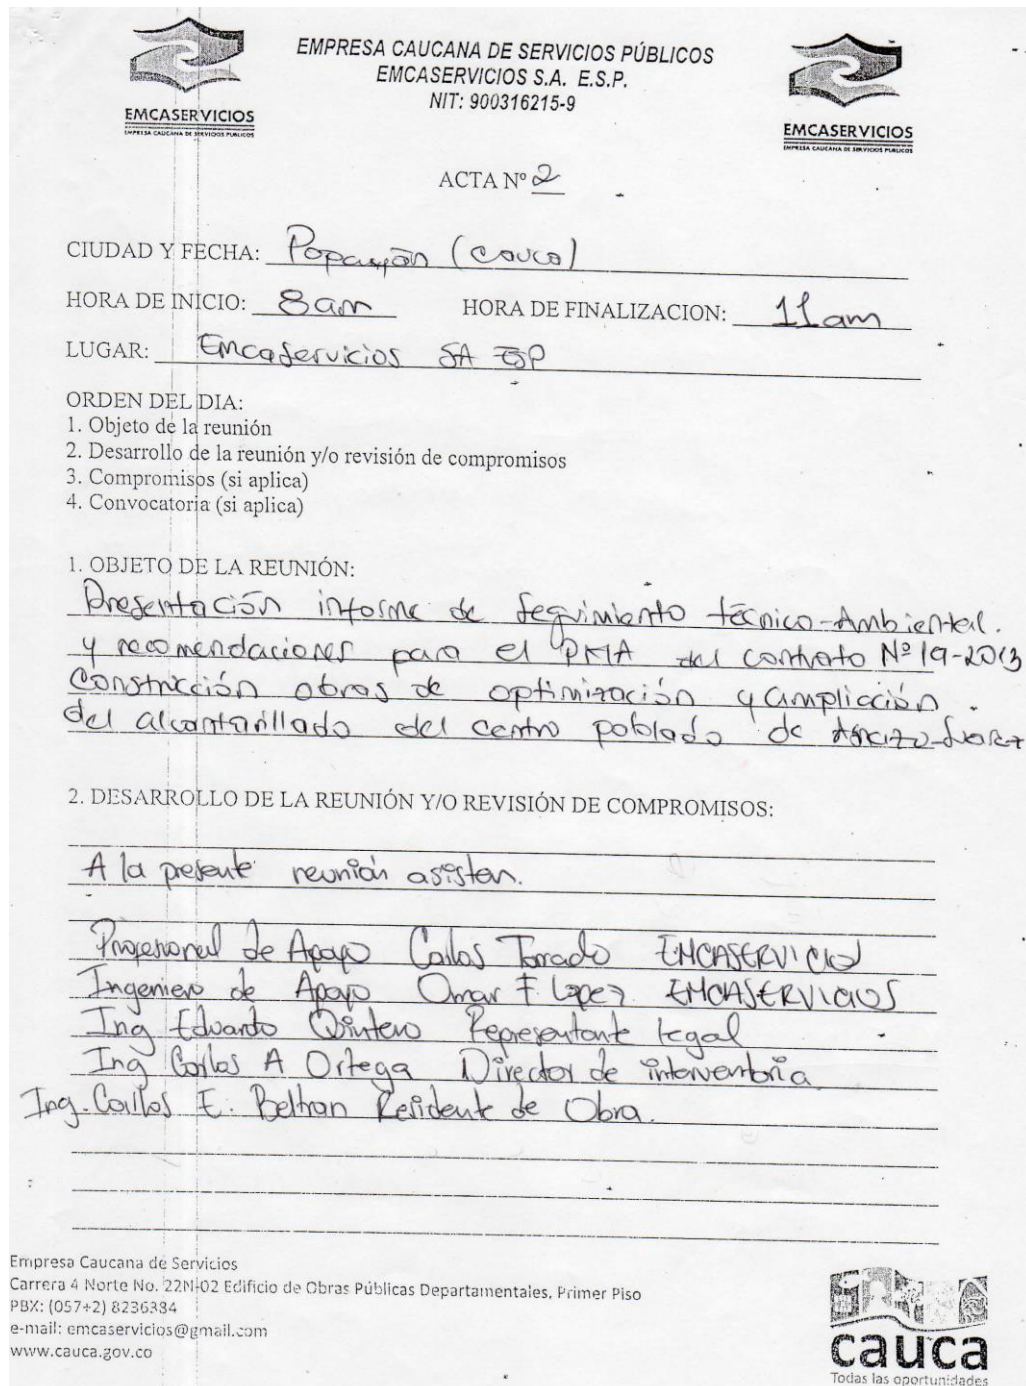 EMPRESA CAUCANA DE SERVICIOS PÚBLICOS
EMCASERVICIOS S.A. E.S.P.
NIT: 900316215-9
EMCASERVICIOS
EMPRESA CAUCANA DE SERVICIOS PUBLICOS
EMCASERVICIOS
EMPRESA CAUCANA DE SERVICIOS PUBLICOS
ACTA Nº 2
CIUDAD Y FECHA: Popayán (Cauca)
HORA DE INICIO: 8am HORA DE FINALIZACION: 11am
LUGAR: Emcaservicios SA ESP
ORDEN DEL DIA:
1. Objeto de la reunión
2. Desarrollo de la reunión y/o revisión de compromisos
3. Compromisos (si aplica)
4. Convocatoria (si aplica)
1. OBJETO DE LA REUNIÓN:
Presentación informe de seguimiento técnico-Ambiental.
y recomendaciones para el PMA del contrato Nº 19-2013
Construcción obras de optimización y ampliación.
del alcantarillado del centro poblado de
2. DESARROLLO DE LA REUNIÓN Y/O REVISIÓN DE COMPROMISOS:
A la presente reunión asisten.
Profesional de Apoyo Carlos Torrado EMCASERVICIOS
Ingeniero de Apoyo Omar F. Lopez EMCASERVICIOS
Ing Eduardo Quintero Representante legal
Ing Carlos A Ortega Director de interventoria
Ing. Carlos E. Beltran Residente de Obra.
Empresa Caucana de Servicios
Carrera 4 Norte No. 22N-02 Edificio de Obras Públicas Departamentales, Primer Piso
PBX: (057+2) 8236384
e-mail: emcaservicios@gmail.com
www.cauca.gov.co
cauca
Todas las oportunidades